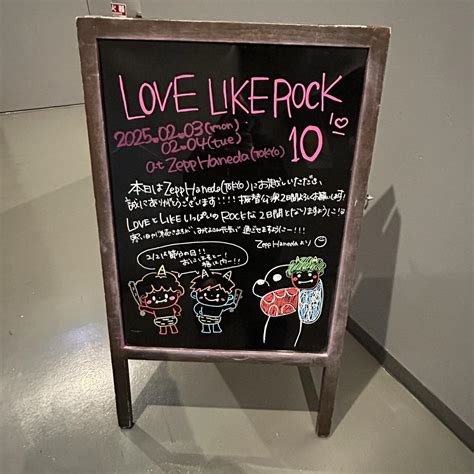 LOVE LIKE ROCK
2025.02.03(mon)
02.04(tue)
10
at Zepp Haneda(TOKYO)
本日はZepp Haneda(TOKYO)にお越しいただき、
誠にありがとうございます!!!!振替公演2日間
LOVEとLIKEいっぱいのROCKな2日間となりますように!!
寒い日が
Zepp Hanedaより
2/2は節分の日!!
おにはそとー!
福はうちー!!